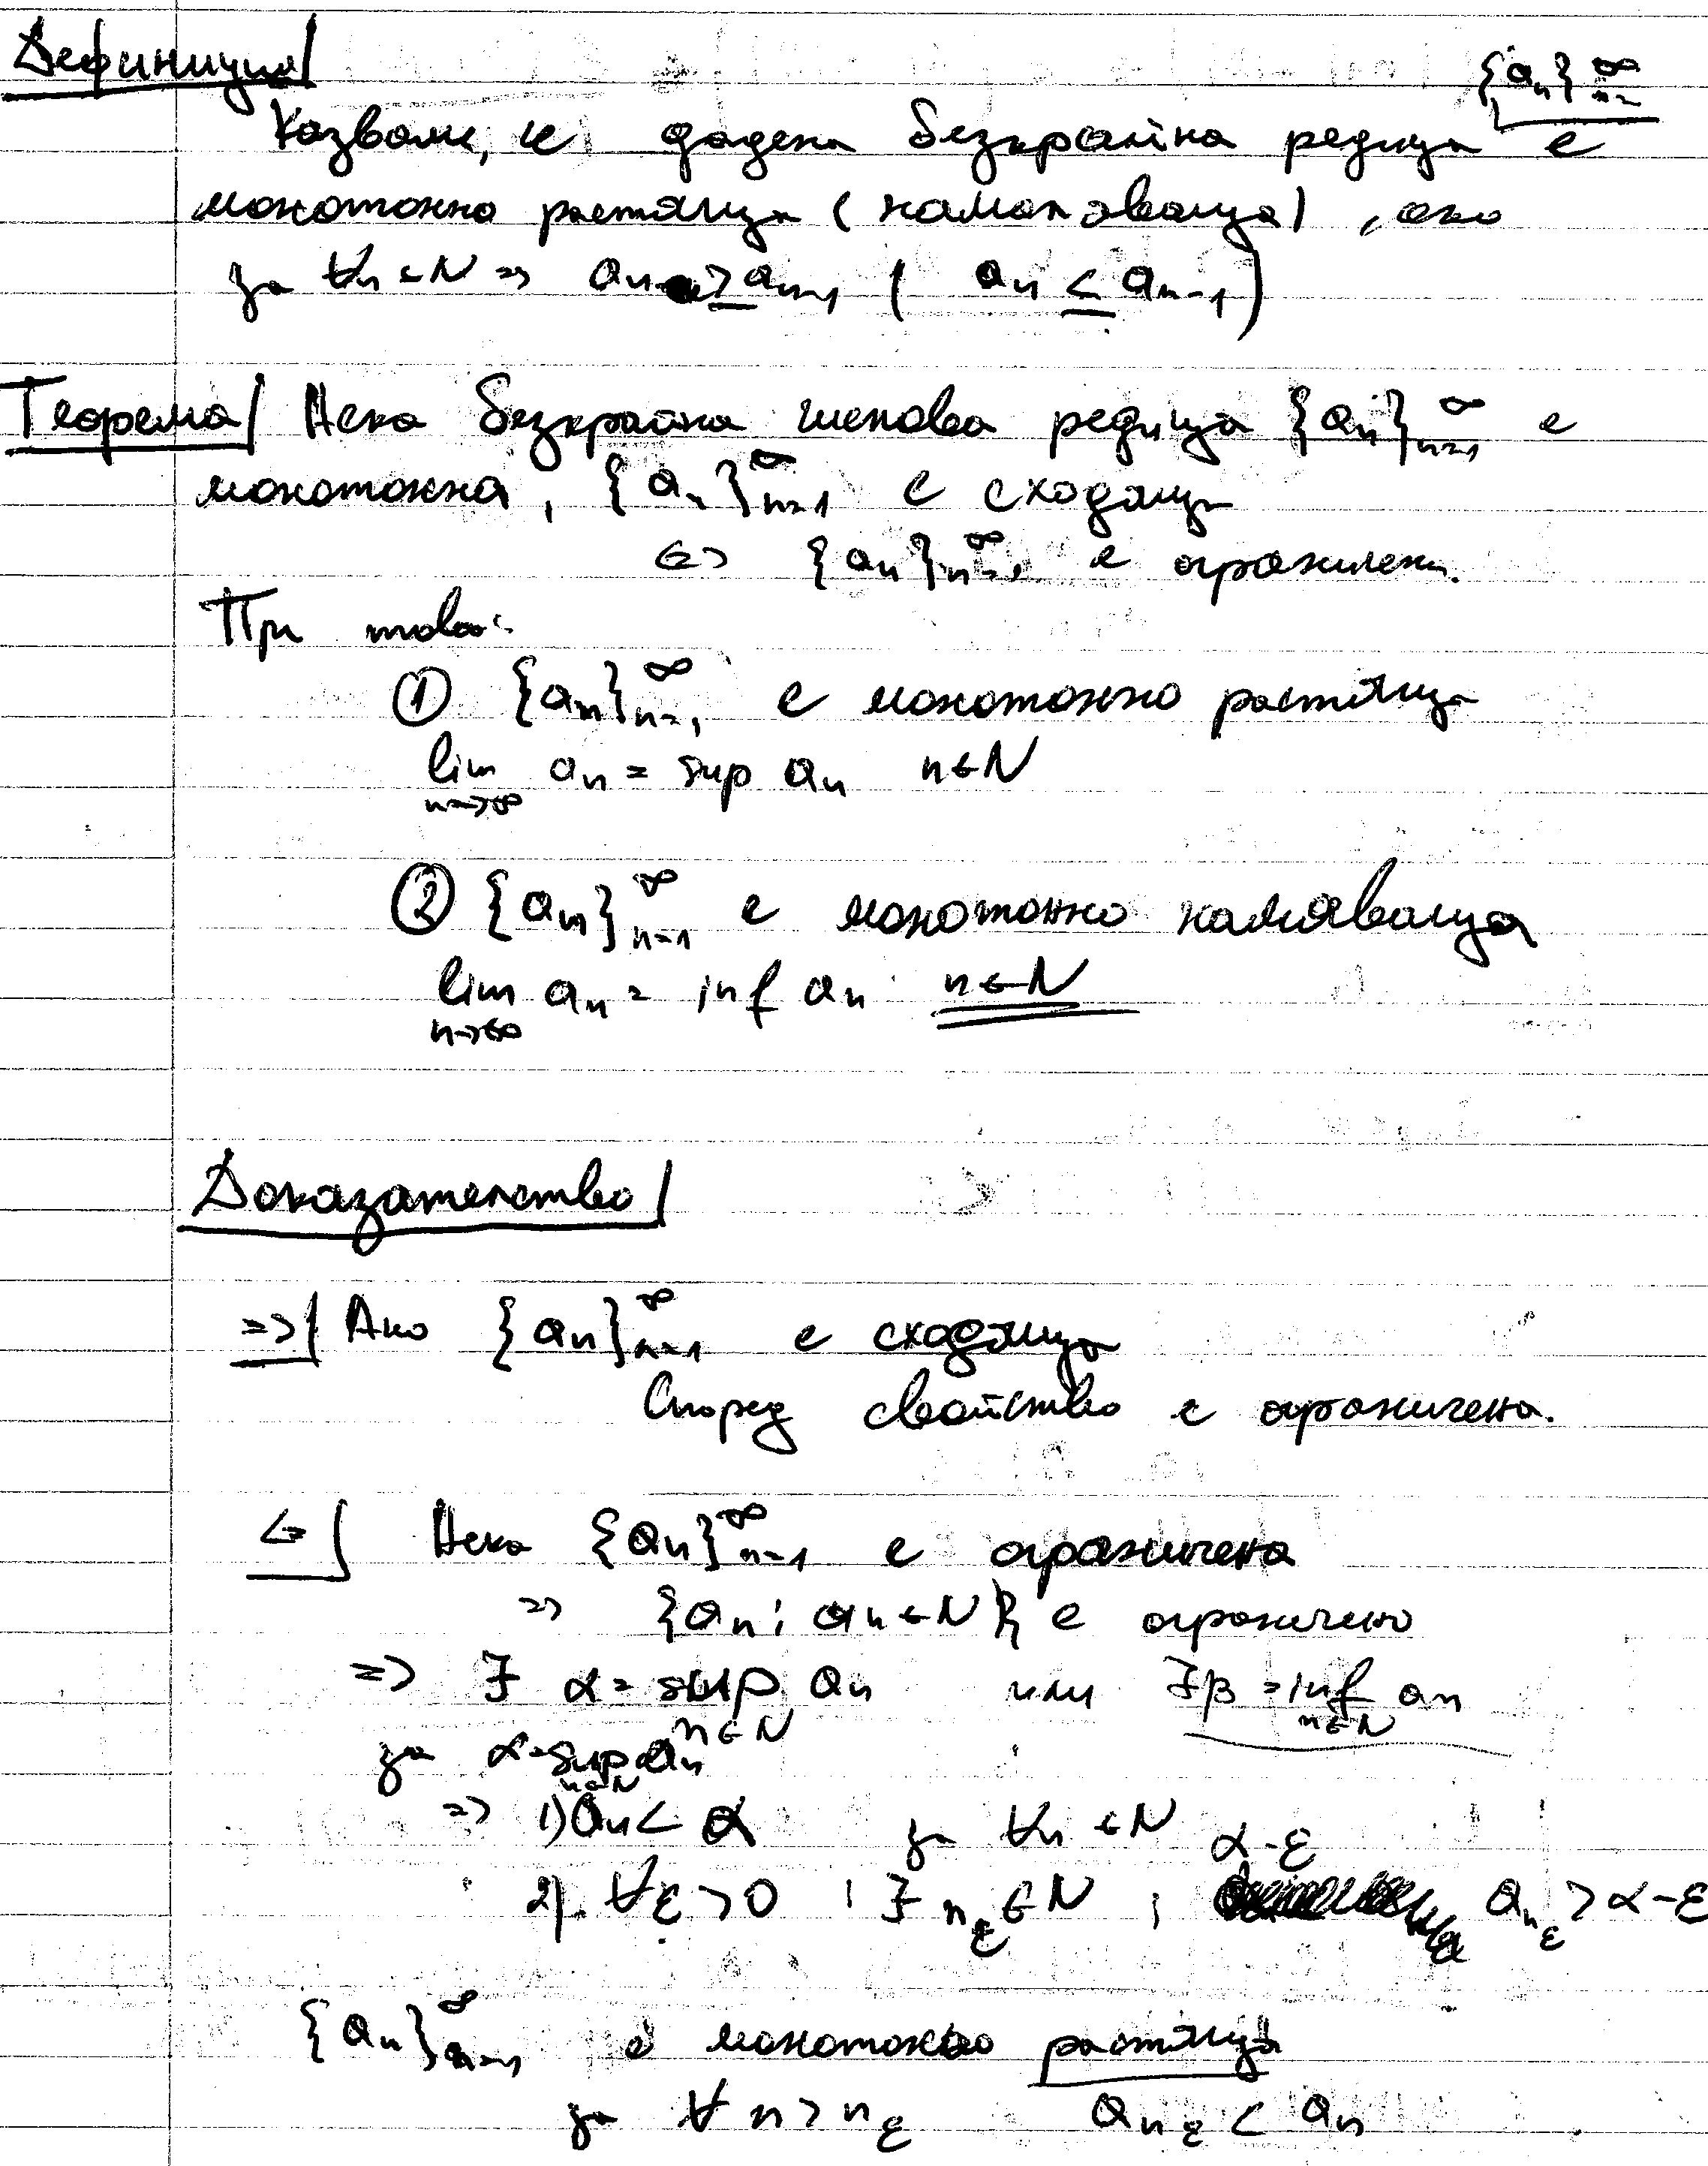 Дефиниция/
{aₙ}∞ n=1
Казваме, че дадена безкрайна редица е
монотонно растяща (намаляваща), ако
за ∀n ∈ N => aₙ ≥ aₙ₋₁ ( aₙ ≤ aₙ₋₁ )
Теорема/ Нека безкрайна числова редица {aₙ}∞ n=1 е
монотонна, {aₙ}∞ n=1 е сходяща
<=> {aₙ}∞ n=1 е ограничена.
При това:
① {aₙ}∞ n=1 е монотонно растяща
lim n->∞ aₙ = sup aₙ n∈N
② {aₙ}∞ n=1 е монотонно намаляваща
lim n->∞ aₙ = inf aₙ n∈N
Доказателство/
=>/ Ако {aₙ}∞ n=1 е сходяща
Според свойство е ограничена.
<=/ Нека {aₙ}∞ n=1 е ограничена
=> {aₙ; aₙ∈N} е ограничено
=> ∃ α = sup n∈N aₙ или ∃β = inf n∈N aₙ
за α = sup n∈N aₙ
=> 1) aₙ < α за ∀n ∈ N
α-ε
2) ∀ε > 0 ; ∃ n_ε ∈ N ; a_{n_ε} > α-ε
{aₙ}∞ n=1 е монотонно растяща
за ∀ n > n_ε a_{n_ε} < aₙ